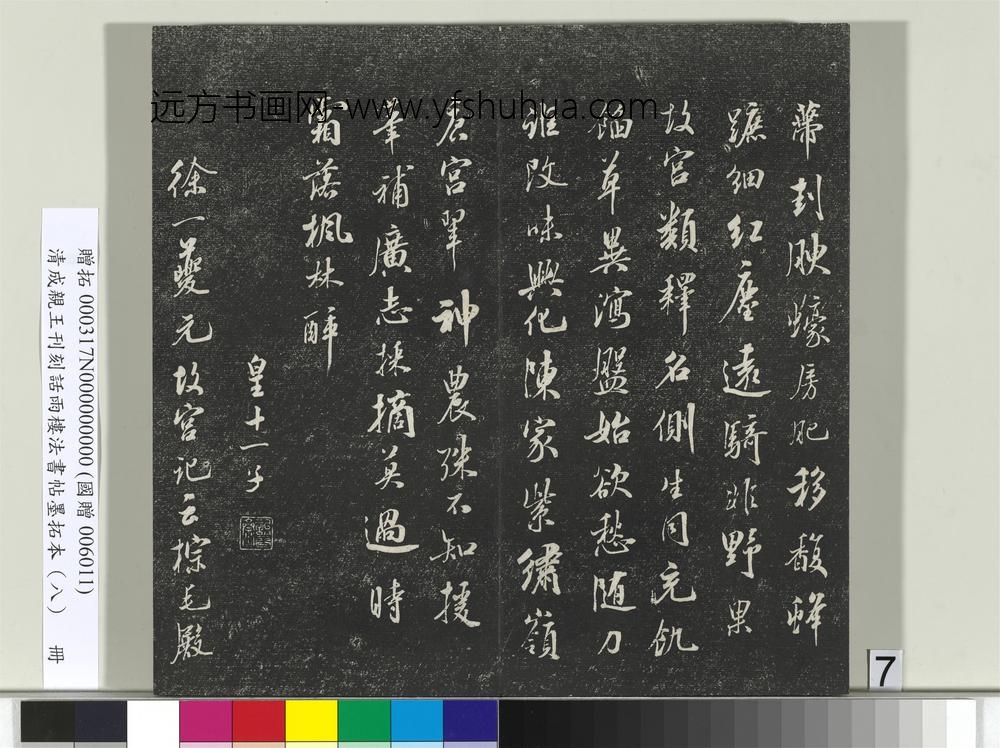 蒂封腴蠔房肥移馥蚌
蹠細紅塵遠騎非野果
故宮類釋名側生同充飢
緗草異瀉盤始欲愁随刀
雖改味興化陳家紫繡嶺
唐宮翠神農殊不知援
筆補廣志採摘莫過時
霜落楓林醉
皇十一子
徐一夔元故宮記云棕毛殿
远方书画网-www.yfshuhua.com
贈拓 000317N000000000(國贈 006011)
清成親王刊刻話雨樓法書帖墨拓本(八) 冊
7